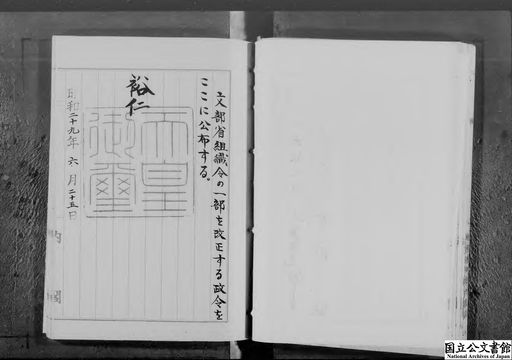 文部省組織令の一部を改正する政令を
ここに公布する。
裕仁
天皇
御璽
昭和二十九年六月二十五日
国立公文書館
National Archives of Japan